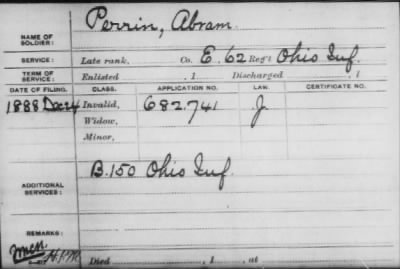 NAME OF SOLDIER: Perrin, Abram.
SERVICE: Late rank, Co. E. 62 Reg't Ohio Inf.
TERM OF SERVICE: Enlisted , 1 Discharged , 1
DATE OF FILING. CLASS. APPLICATION NO. LAW. CERTIFICATE NO.
1888 Dec 24 Invalid, 682,741 J.
Widow,
Minor,
ADDITIONAL SERVICES: B. 150 Ohio Inf.
REMARKS:
Died , 1 , at